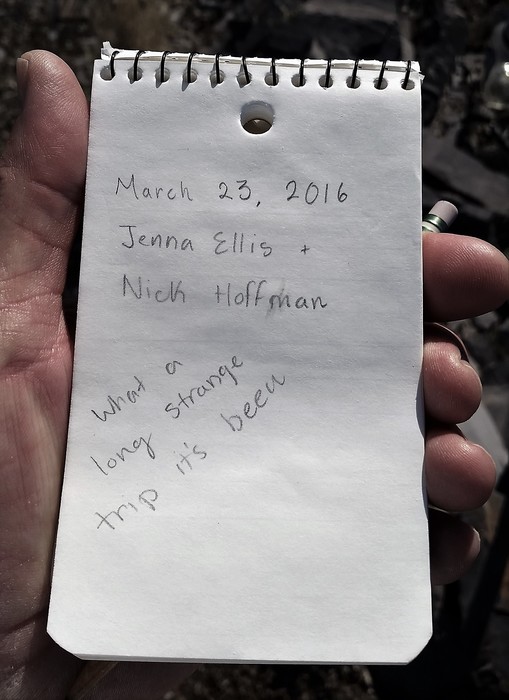 March 23, 2016
Jenna Ellis +
Nick Hoffman
What a
long strange
trip it's been